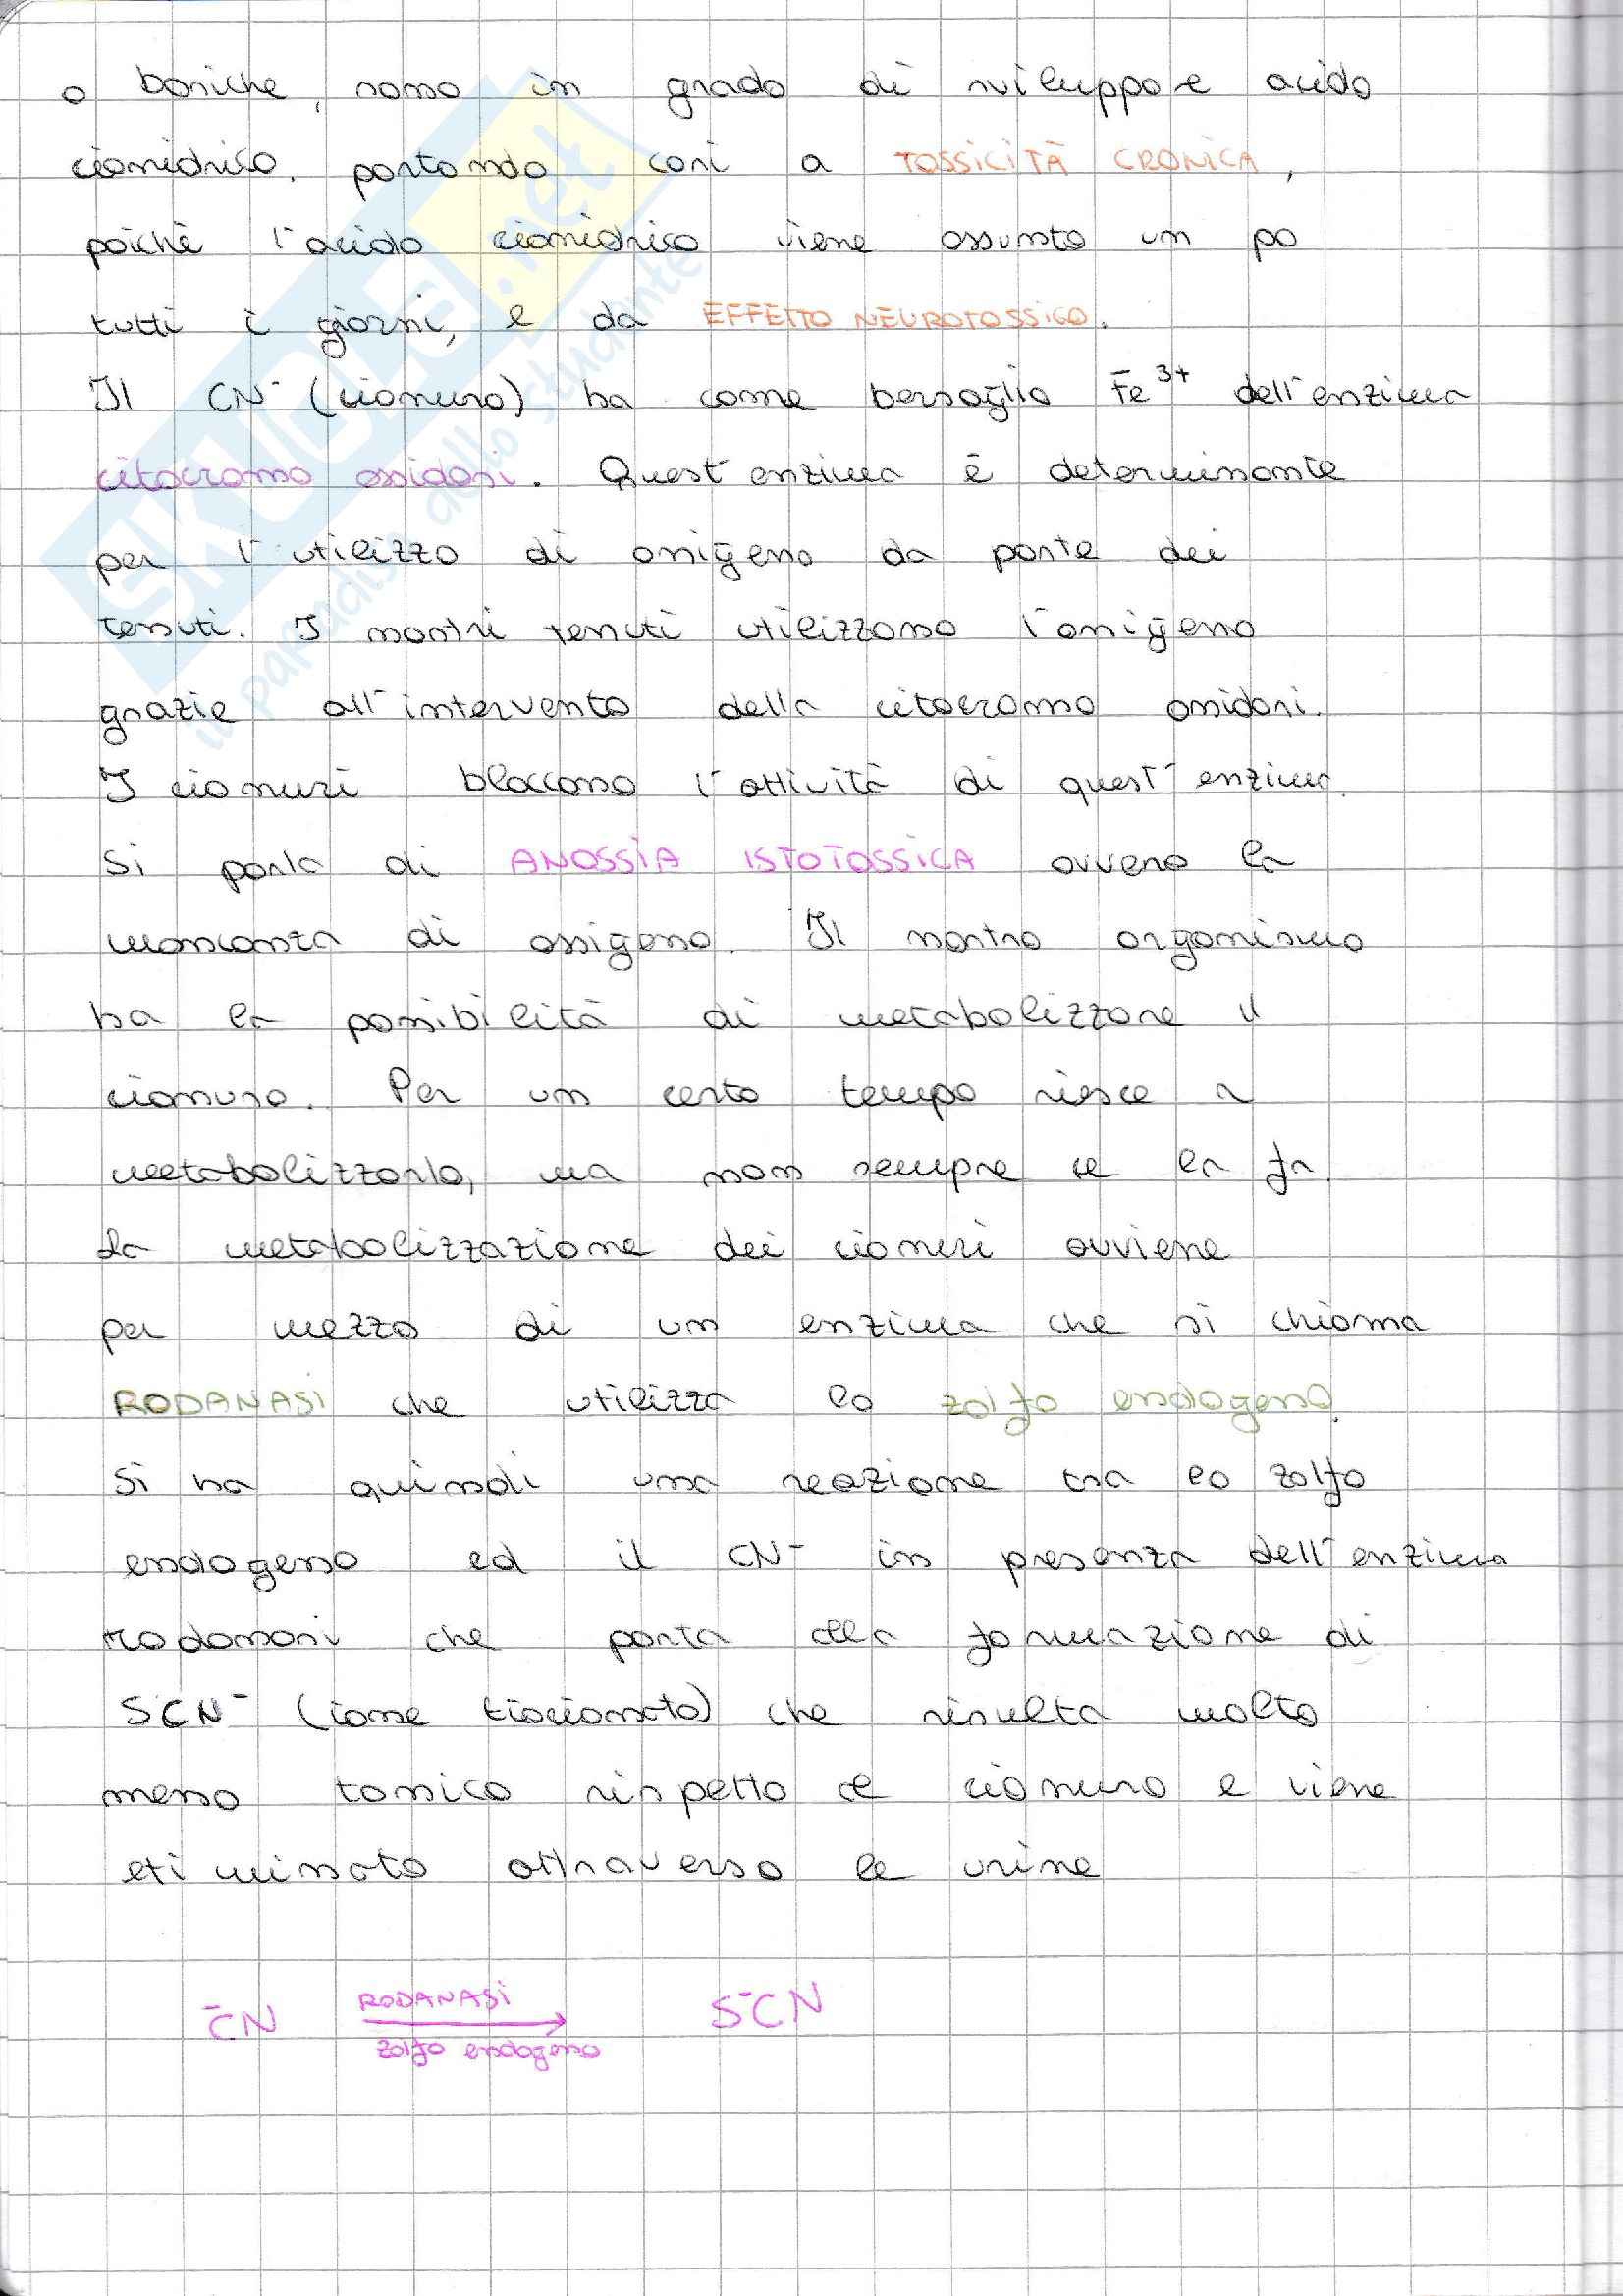 o boniche, sono in grado di sviluppare acido
cianidrico, portando così a TOSSICITÀ CRONICA,
poichè l'acido cianidrico viene assunto un po
tutti i giorni, e da EFFETTO NEUROTOSSICO.
Il CN⁻ (cianuro) ha come bersaglio Fe³⁺ dell'enzima
citocromo ossidasi. Quest'enzima è determinante
per l'utilizzo di ossigeno da parte dei
tessuti. I nostri tessuti utilizzano l'ossigeno
grazie all'intervento della citocromo ossidasi.
I cianuri bloccano l'attività di quest'enzima.
Si parla di ANOSSIA ISTOTOSSICA ovvero la
mancanza di ossigeno. Il nostro organismo
ha la possibilità di metabolizzare il
cianuro. Per un certo tempo riesce a
metabolizzarlo, ma non sempre ce la fa.
La metabolizzazione dei cianuri avviene
per mezzo di un enzima che si chiama
RODANASI che utilizza lo zolfo endogeno.
Si ha quindi una reazione tra lo zolfo
endogeno ed il CN⁻ in presenza dell'enzima
rodanasi che porta alla formazione di
SCN⁻ (ione tiocianato) che risulta molto
meno tossico rispetto al cianuro e viene
eliminato attraverso le urine
⁻CN RODANASI → S⁻CN
zolfo endogeno
SKUOLA.net
il paradiso dello studente